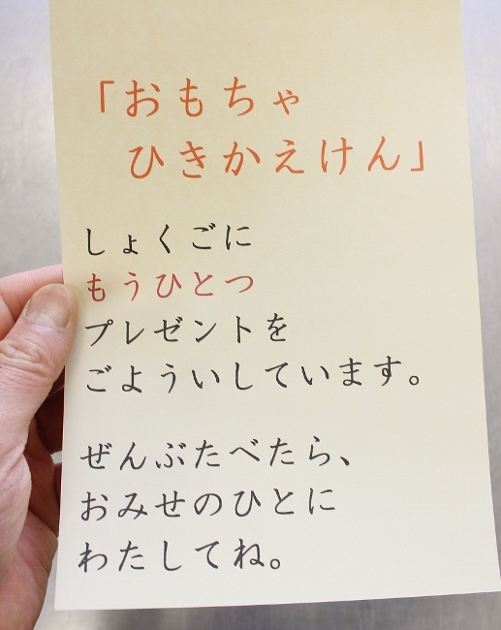 「おもちゃ
ひきかえけん」
しょくごに
もうひとつ
プレゼントを
ごよういしています。
ぜんぶたべたら、
おみせのひとに
わたしてね。